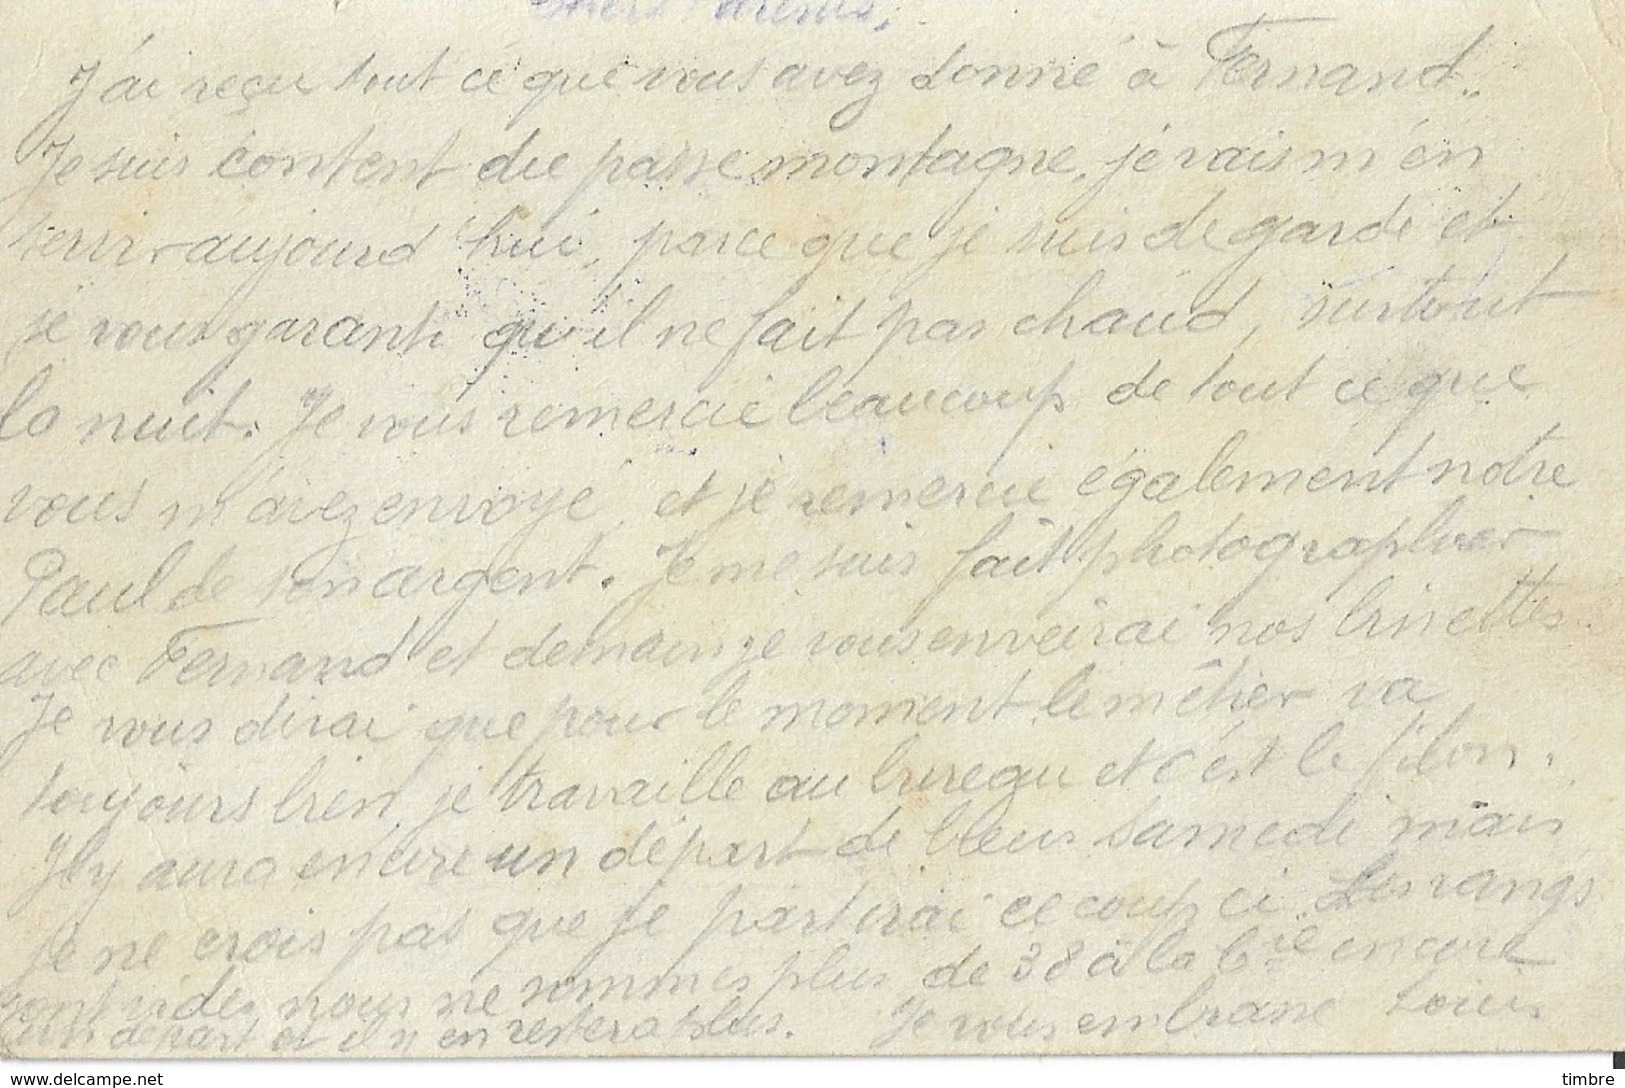 Chers Parents,
J'ai reçu tout ce que vous avez donné à Fernand.
Je suis content du passe montagne, je vais m'en
servir aujourd'hui, parce que je suis de garde et
je vous garanti qu'il ne fait pas chaud, surtout
la nuit. Je vous remercie beaucoup de tout ce que
vous m'avez envoyé, et je remercie également notre
Paul de son argent. Je me suis fait photographier
avec Fernand et demain je vous enveirai nos binettes.
Je vous dirai que pour le moment le métier va
toujours bien, je travaille au bureau et c'est le filon.
Il y aura encore un départ de bleus samedi mais
je ne crois pas que je partirai ce coup ci. Les rangs
sont vides, nous ne sommes plus de 38 à la Cie encore
un départ et il n'en restera plus. Je vous embrasse tous
www.delcampe.net
timbre